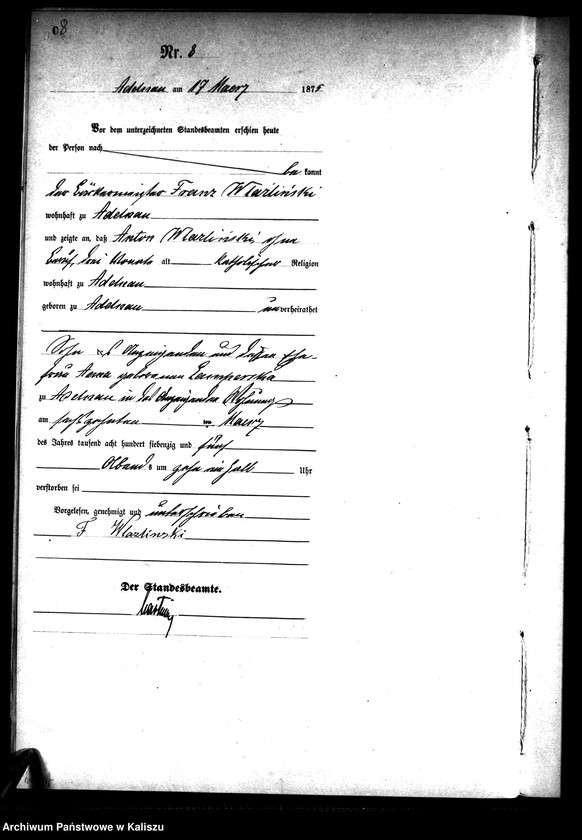 08
Nr. 8
Adelnau am 17 Maerz 1875
Vor dem unterzeichneten Standesbeamten erschien heute
der Person nach
bekannt
der Franz Wlazliński
wohnhaft zu Adelnau
und zeigte an, daß Anton Wlazliński, ohne
Beruf, drei Monate alt katholischer Religion
wohnhaft zu Adelnau
geboren zu Adelnau unverheirathet
Sohn des Anzeigenden und dessen Ehe-
frau Anna geborenen
zu Adelnau in des Anzeigenden Wohnung
am sechszehnten Maerz
des Jahres tausend acht hundert siebenzig und fünf
Abends um zehn ein halb Uhr
verstorben sei
Vorgelesen, genehmigt und unterschrieben
F Wlazlinski
Der Standesbeamte.
Archiwum Państwowe w Kaliszu